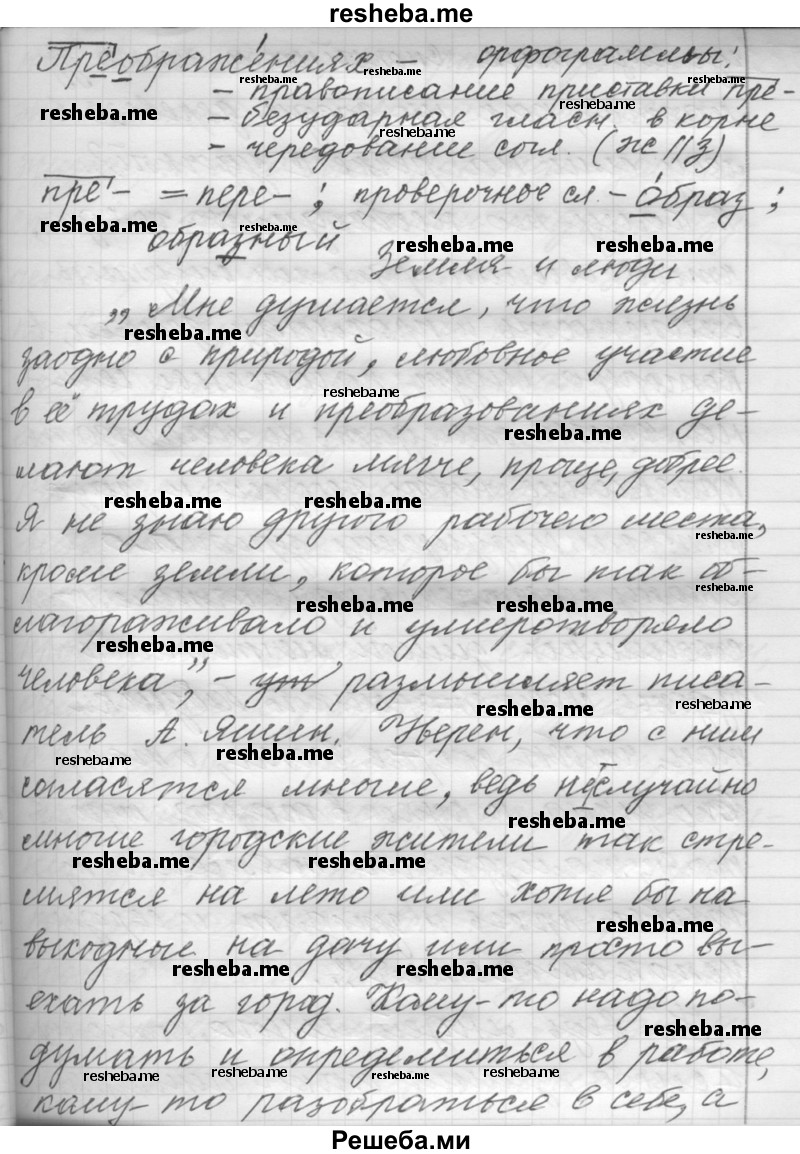 resheba.me
Преображениях – орфограммы:
– правописание приставки пре-
– безударная гласн. в корне
– чередование согл. (ж//з)
пре- = пере- ; проверочное сл. – образ ;
образный
Земля и люди.
„Мне думается, что жизнь
заодно с природой, любовное участие
в её трудах и преобразованиях де-
лают человека мягче, проще, добрее.
Я не знаю другого рабочего места,
кроме земли, которое бы так об-
лагораживало и умиротворяло
человека”, – размышляет писа-
тель А. Яшин. Уверен, что с ним
согласятся многие, ведь не случайно
многие городские жители так стре-
мятся на лето или хотя бы на
выходные на дачу или просто вы-
ехать за город. Кому-то надо по-
думать и определиться в работе,
кому-то разобраться в себе, а
Решеба.ми